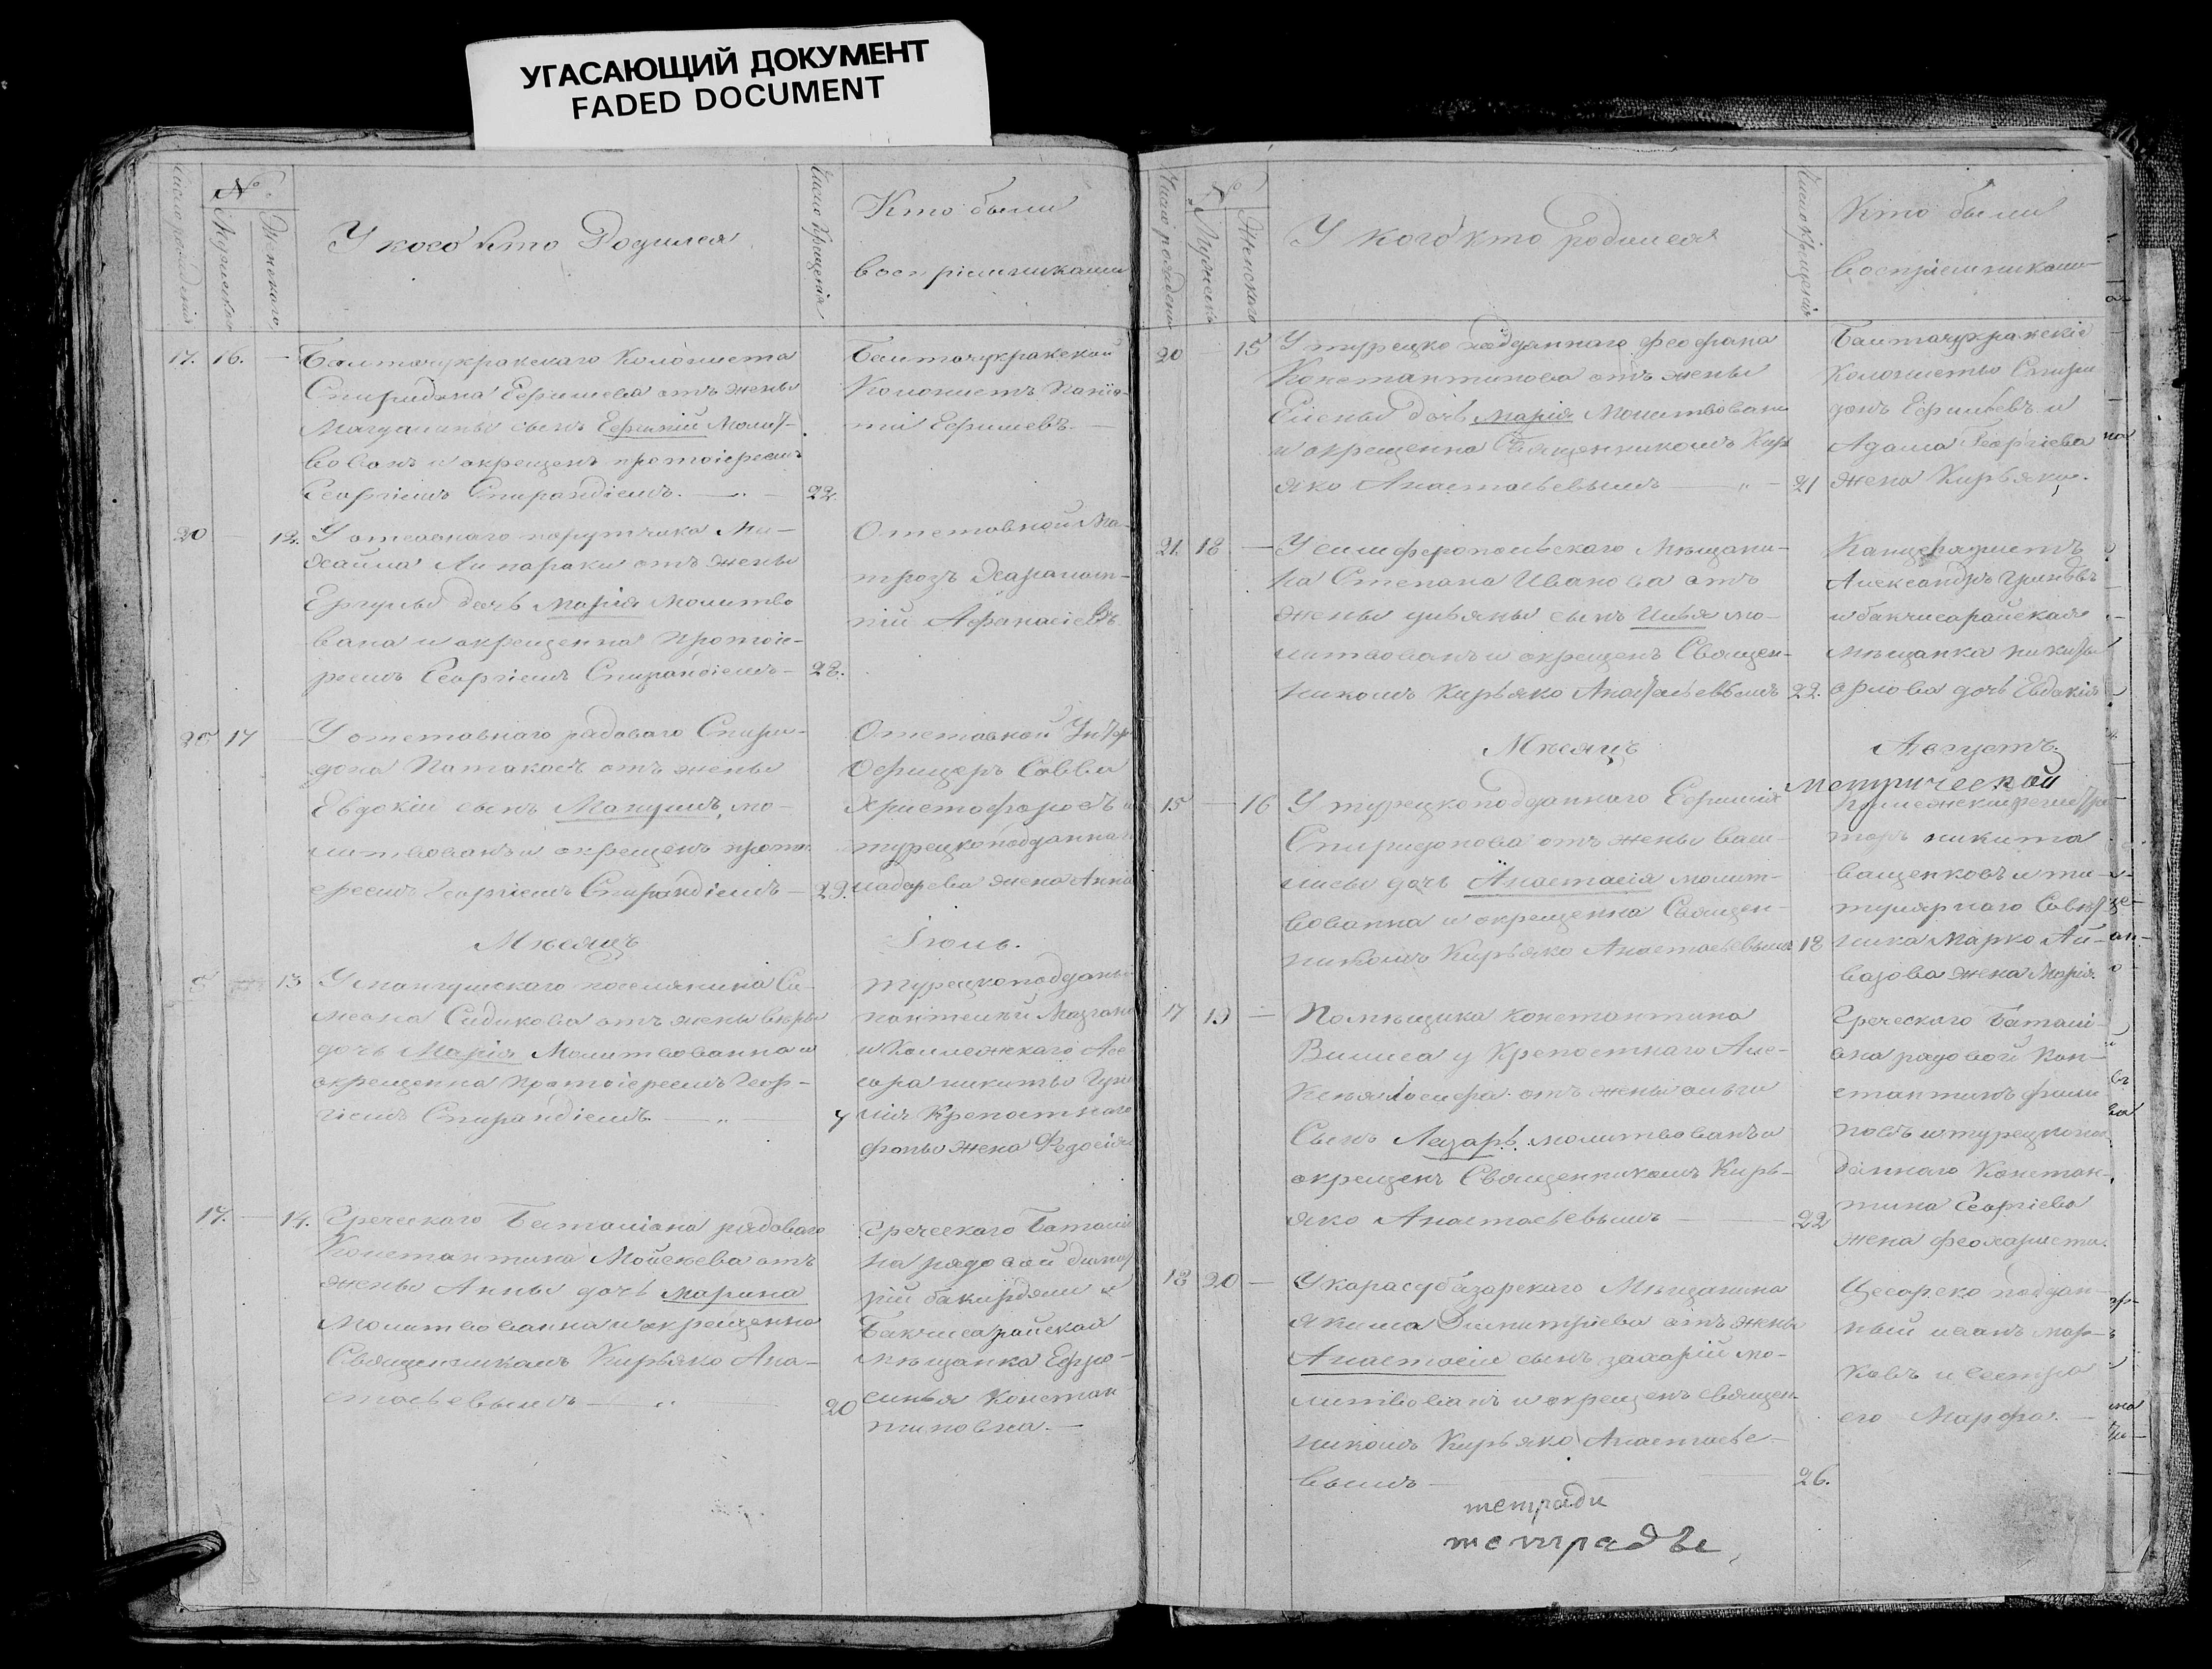 УГАСАЮЩИЙ ДОКУМЕНТ
FADED DOCUMENT
Число рождения
№
Мужеска
Женскаго
У кого кто Родился
Число Крещенія
Кто были
воспріемниками
17. 16. —
скаго Колониста
Спиридона Ефимьева отъ жены
Магдалины сынъ Ефимій Молит-
вованъ и окрещенъ протоіереемъ
Георгіемъ Спирандіемъ. — 22.
Колонистъ
Ефимьевъ. —
20 — 12.
У отставнаго порутчика Ми-
хайла Липараки отъ жены
дочь Марія молитво
вана и окрещенна Протоіе-
реемъ Георгіемъ Спирандіемъ — 28.
Отставной Ма-
трозъ Харалам-
пій Афанасіевъ
25 17 —
У отставнаго рядоваго Спири-
дона отъ жены
Евдокіи сынъ мо-
литвованъ и окрещенъ протоі
ереемъ Георгіемъ Спирандіемъ — 29.
Отставной Унтеръ
Офицеръ Савва
Христофоровъ и
турецкоподданнаго
жена Анна
Мѣсяцъ
Іюль.
5 13
У мангушскаго поселянина Си-
меона Садикова отъ жены вѣры
дочь Марія Молитвованна и
окрещенна Протоіереемъ Геор-
гіемъ Спирандіемъ — „ — 7
турецкоподданы
пантелѣй
и Коллежскаго Асе-
сора никиты
Крепостнаго
жена Федосія
17. — 14.
Греческаго Баталіона рядоваго
Константина Мойсеева отъ
жены Анны дочь Марина
Молитвованна и окрещенна
Священникомъ Кирьяко Ана-
стасьевымъ — „ 20
Греческаго Баталіо
на рядовой димит
рій
Бакчисарайская
мѣщанка Ефро-
синья Констан
тиновна. —
Число рожденія
№
Мужеска
Женскаго
У кого кто родился
Число Крещенія
Кто были
воспріемниками
20 — 15
У турецко подданнаго Феофана
Константинова отъ жены
Елены дочь Марія Молитвована
и окрещенна Священникомъ Кирь
яко Анастасьевымъ — „ — 21
Колонисты Спири
донъ Ефимьевъ и
Адама Георгіева
жена Кирьяки.
21. 18 —
У симферопольскаго Мѣщани-
на Степана Иванова отъ
жены ульяны сынъ Илья мо-
литвованъ и окрещенъ Священ-
никомъ Кирьяко Анастасьевымъ 22.
Канцеляристъ
Александръ
и бакчисарайская
Мѣщанка никиты
орлова дочь Евдокія
Мѣсяцъ
Августъ.
Метрической
15 — 16
У турецкоподданнаго Ефимія
Спиридонова отъ жены васи-
лисы дочь Анастасія молит-
вованна и окрещенна Священ-
никомъ Кирьяко Анастасьевымъ 18
торъ никита
ващенковъ и ти-
тулярнаго Совет
ника Марко Ай-
вазова жена Марія.
17 19 —
Помѣщика константина
у Крепостнаго Але-
ксѣя отъ жены ольги
Сынъ Лазарь молитвованъ и
окрещенъ Священникомъ Кирь-
яко Анастасьевымъ — 22
Греческаго Баталі-
она рядовой Кон-
стантинъ
повъ и турецкопод
даннаго Констан-
тина Георгіева
жена феохариста.
18 20 —
У карасубазарскаго Мѣщанина
Якима Димитріева отъ жены
Анастасіи сынъ захарій мо-
литвованъ и окрещенъ Священ-
никомъ Кирьяко Анастасье-
вымъ — 26.
Цесарско поддан-
ный иванъ мар-
ковъ и сестра
его Марфа. —
тетради
тетрадье